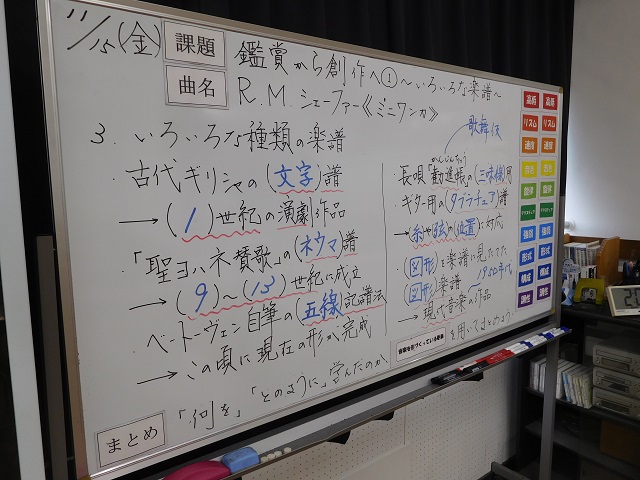 11/15(金)
課題
鑑賞から創作へ①～いろいろな楽譜～
曲名
R.M.シェーファー《ミニワンカ》
3. いろいろな種類の楽譜
・古代ギリシャの(文字)譜
→(1)世紀の演劇作品
・「聖ヨハネ賛歌」の(ネウマ)譜
→(9)～(13)世紀に成立
・ベートーヴェン自筆の(五線)記譜法
→この頃に現在の形が完成
歌舞伎
かんじんちょう
・長唄「勧進帳」の(三味線)用
・ギター用の(タブラチュア)譜
→(糸や弦)の(位置)に対応
・(図形)を楽譜に見たてた
(図形)楽譜
1950年代
→現代音楽の作品
まとめ
「何を」「どのように」学んだのか
音楽を形づくっている要素
を用いてまとめよう。
音色 音色
リズム リズム
速度 速度
旋律 旋律
強弱 強弱
形式 形式
構成 構成
調性 調性